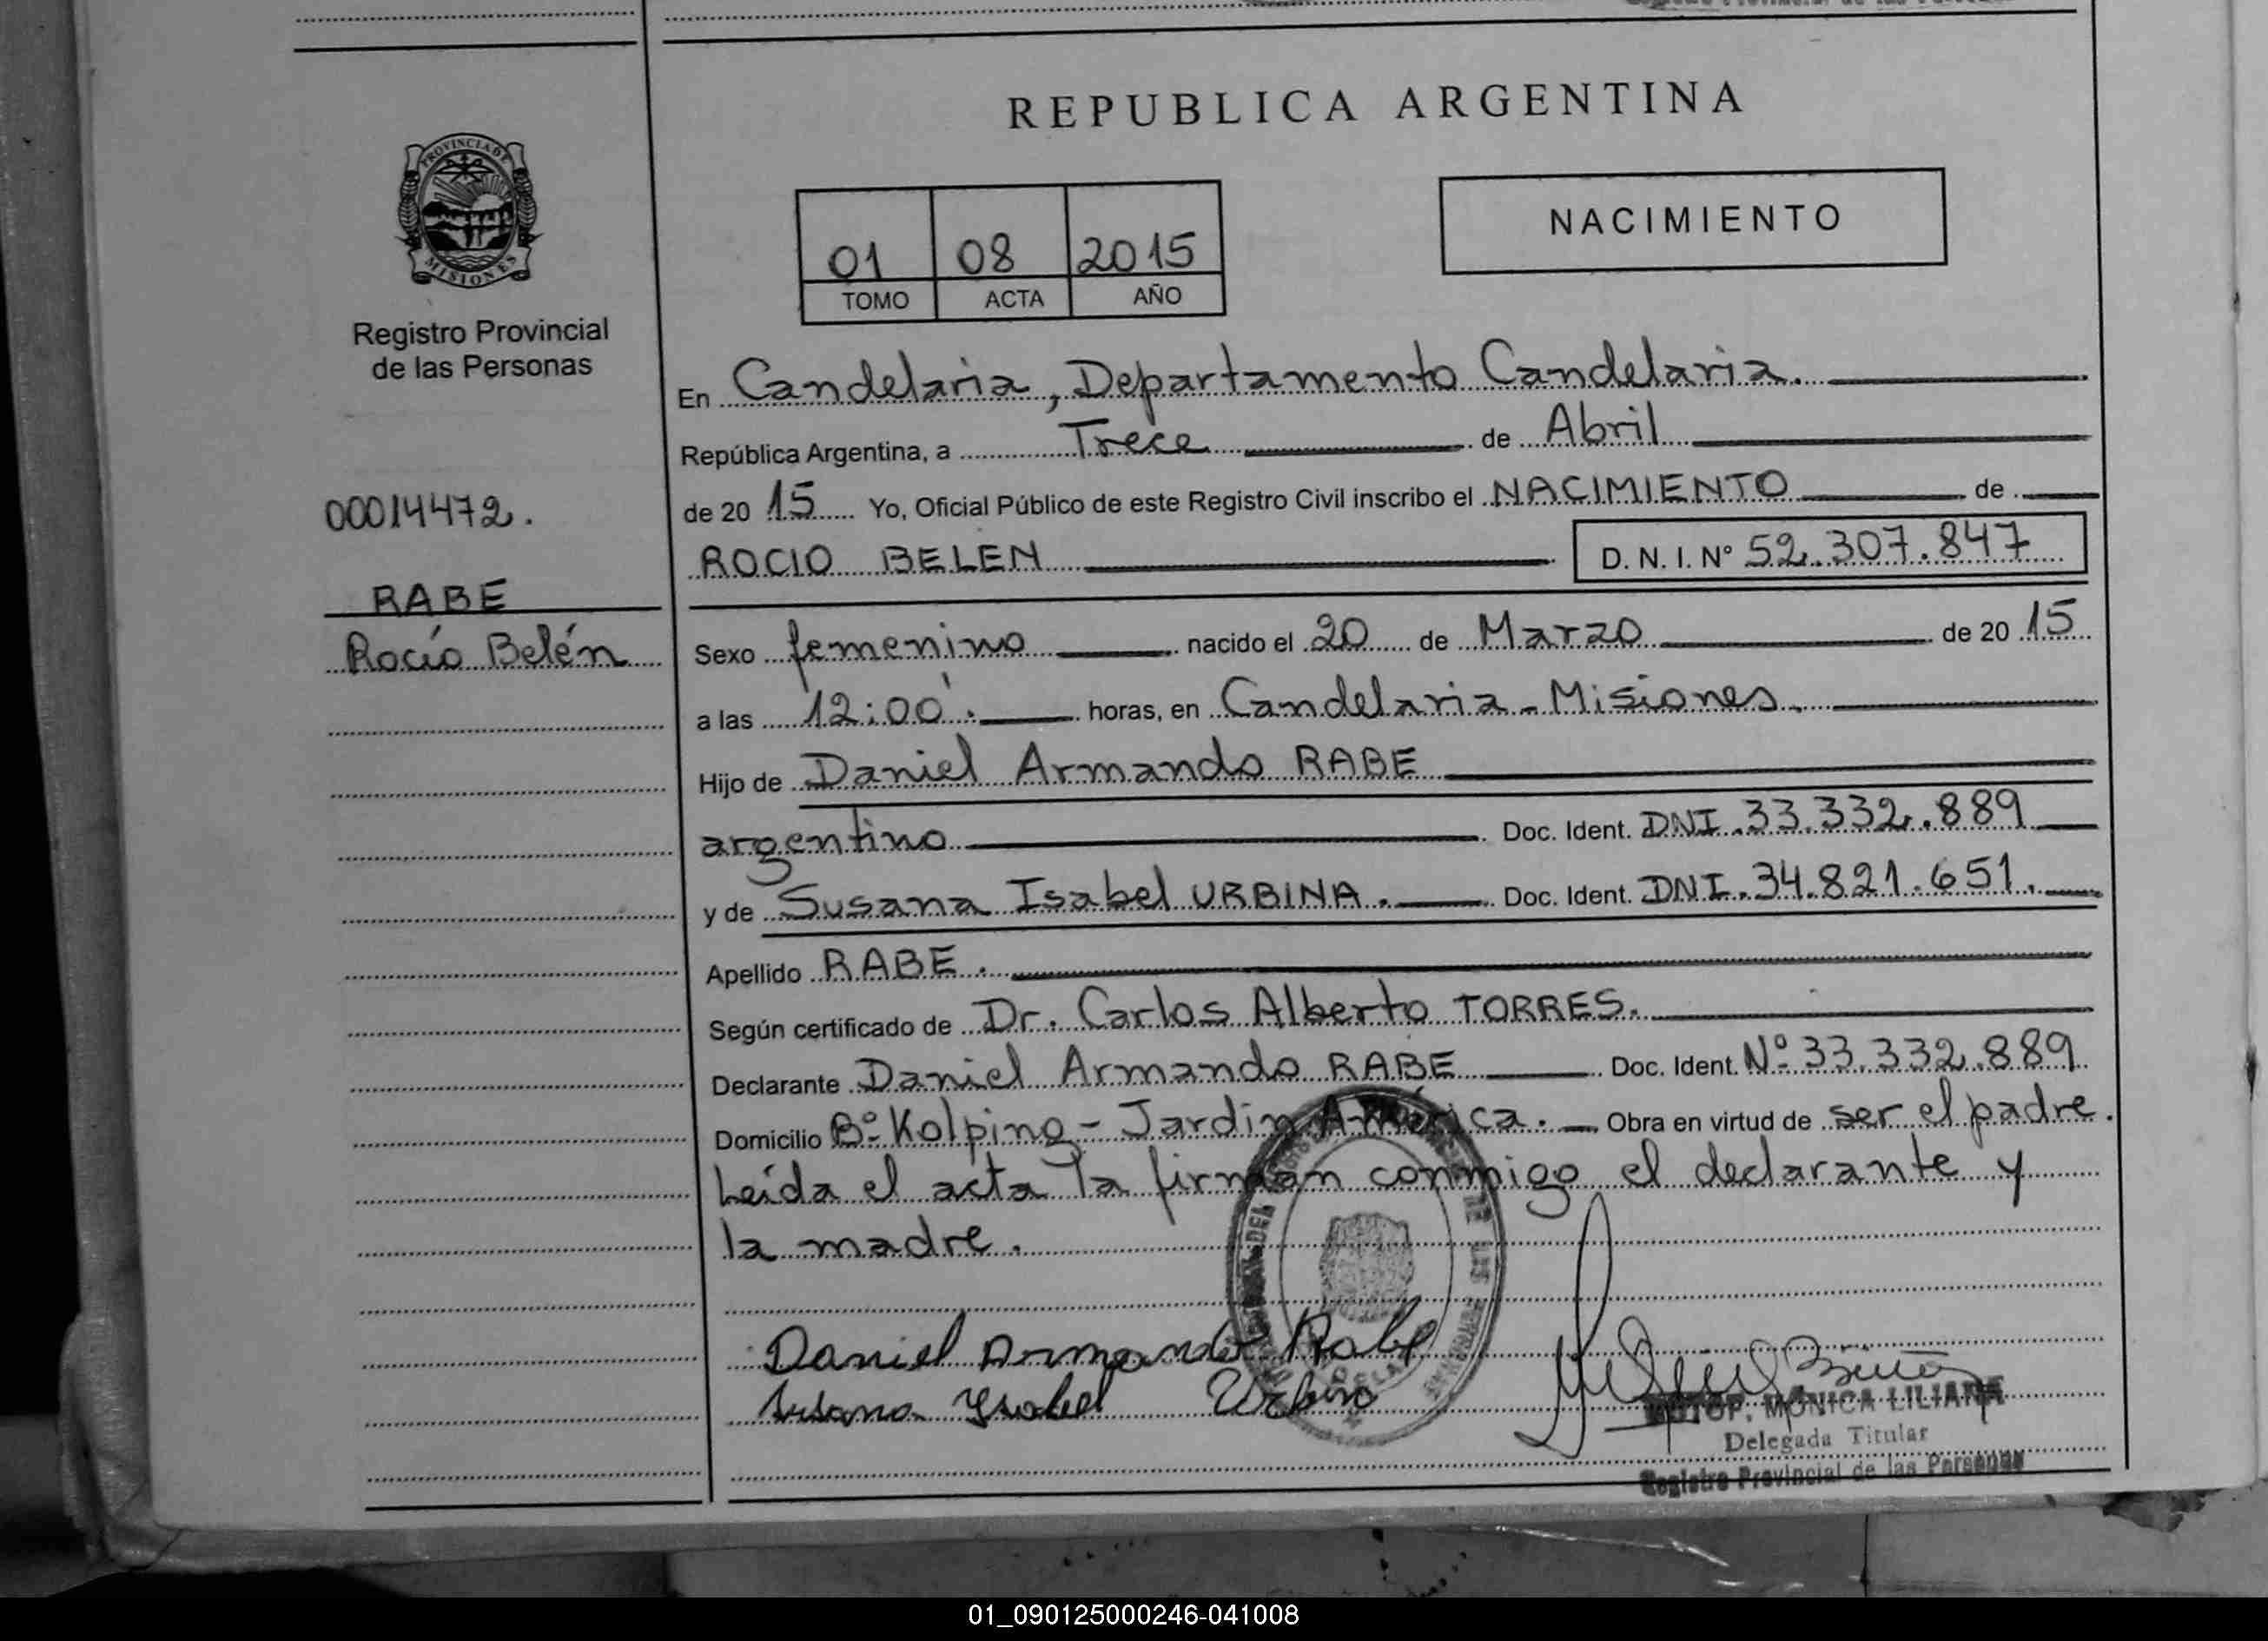 REPUBLICA ARGENTINA
PROVINCIA DE
MISIONES
Registro Provincial
de las Personas
01 08 2015
TOMO ACTA AÑO
NACIMIENTO
En Candelaria, Departamento Candelaria.
República Argentina, a Trece de Abril
00014472.
de 20 15 Yo, Oficial Público de este Registro Civil inscribo el NACIMIENTO de
ROCIO BELEN D. N. I. Nº 52.307.847
RABE
Rocío Belén
Sexo femenino nacido el 20 de Marzo de 20 15
a las 12:00'. horas, en Candelaria - Misiones.
Hijo de Daniel Armando RABE
argentino Doc. Ident. DNI.33.332.889
y de Susana Isabel URBINA. Doc. Ident. DNI.34.821.651.
Apellido RABE.
Según certificado de Dr. Carlos Alberto TORRES.
Declarante Daniel Armando RABE Doc. Ident. Nº 33.332.889
Domicilio Bº Kolping - Jardín América. Obra en virtud de ser el padre.
Leída el acta la firman conmigo el declarante y
la madre.
Daniel Armando Rabe
Susana Ysabel Urbina
MONICA LILIANA
Delegada Titular
Registro Provincial de las Personas
01_090125000246-041008